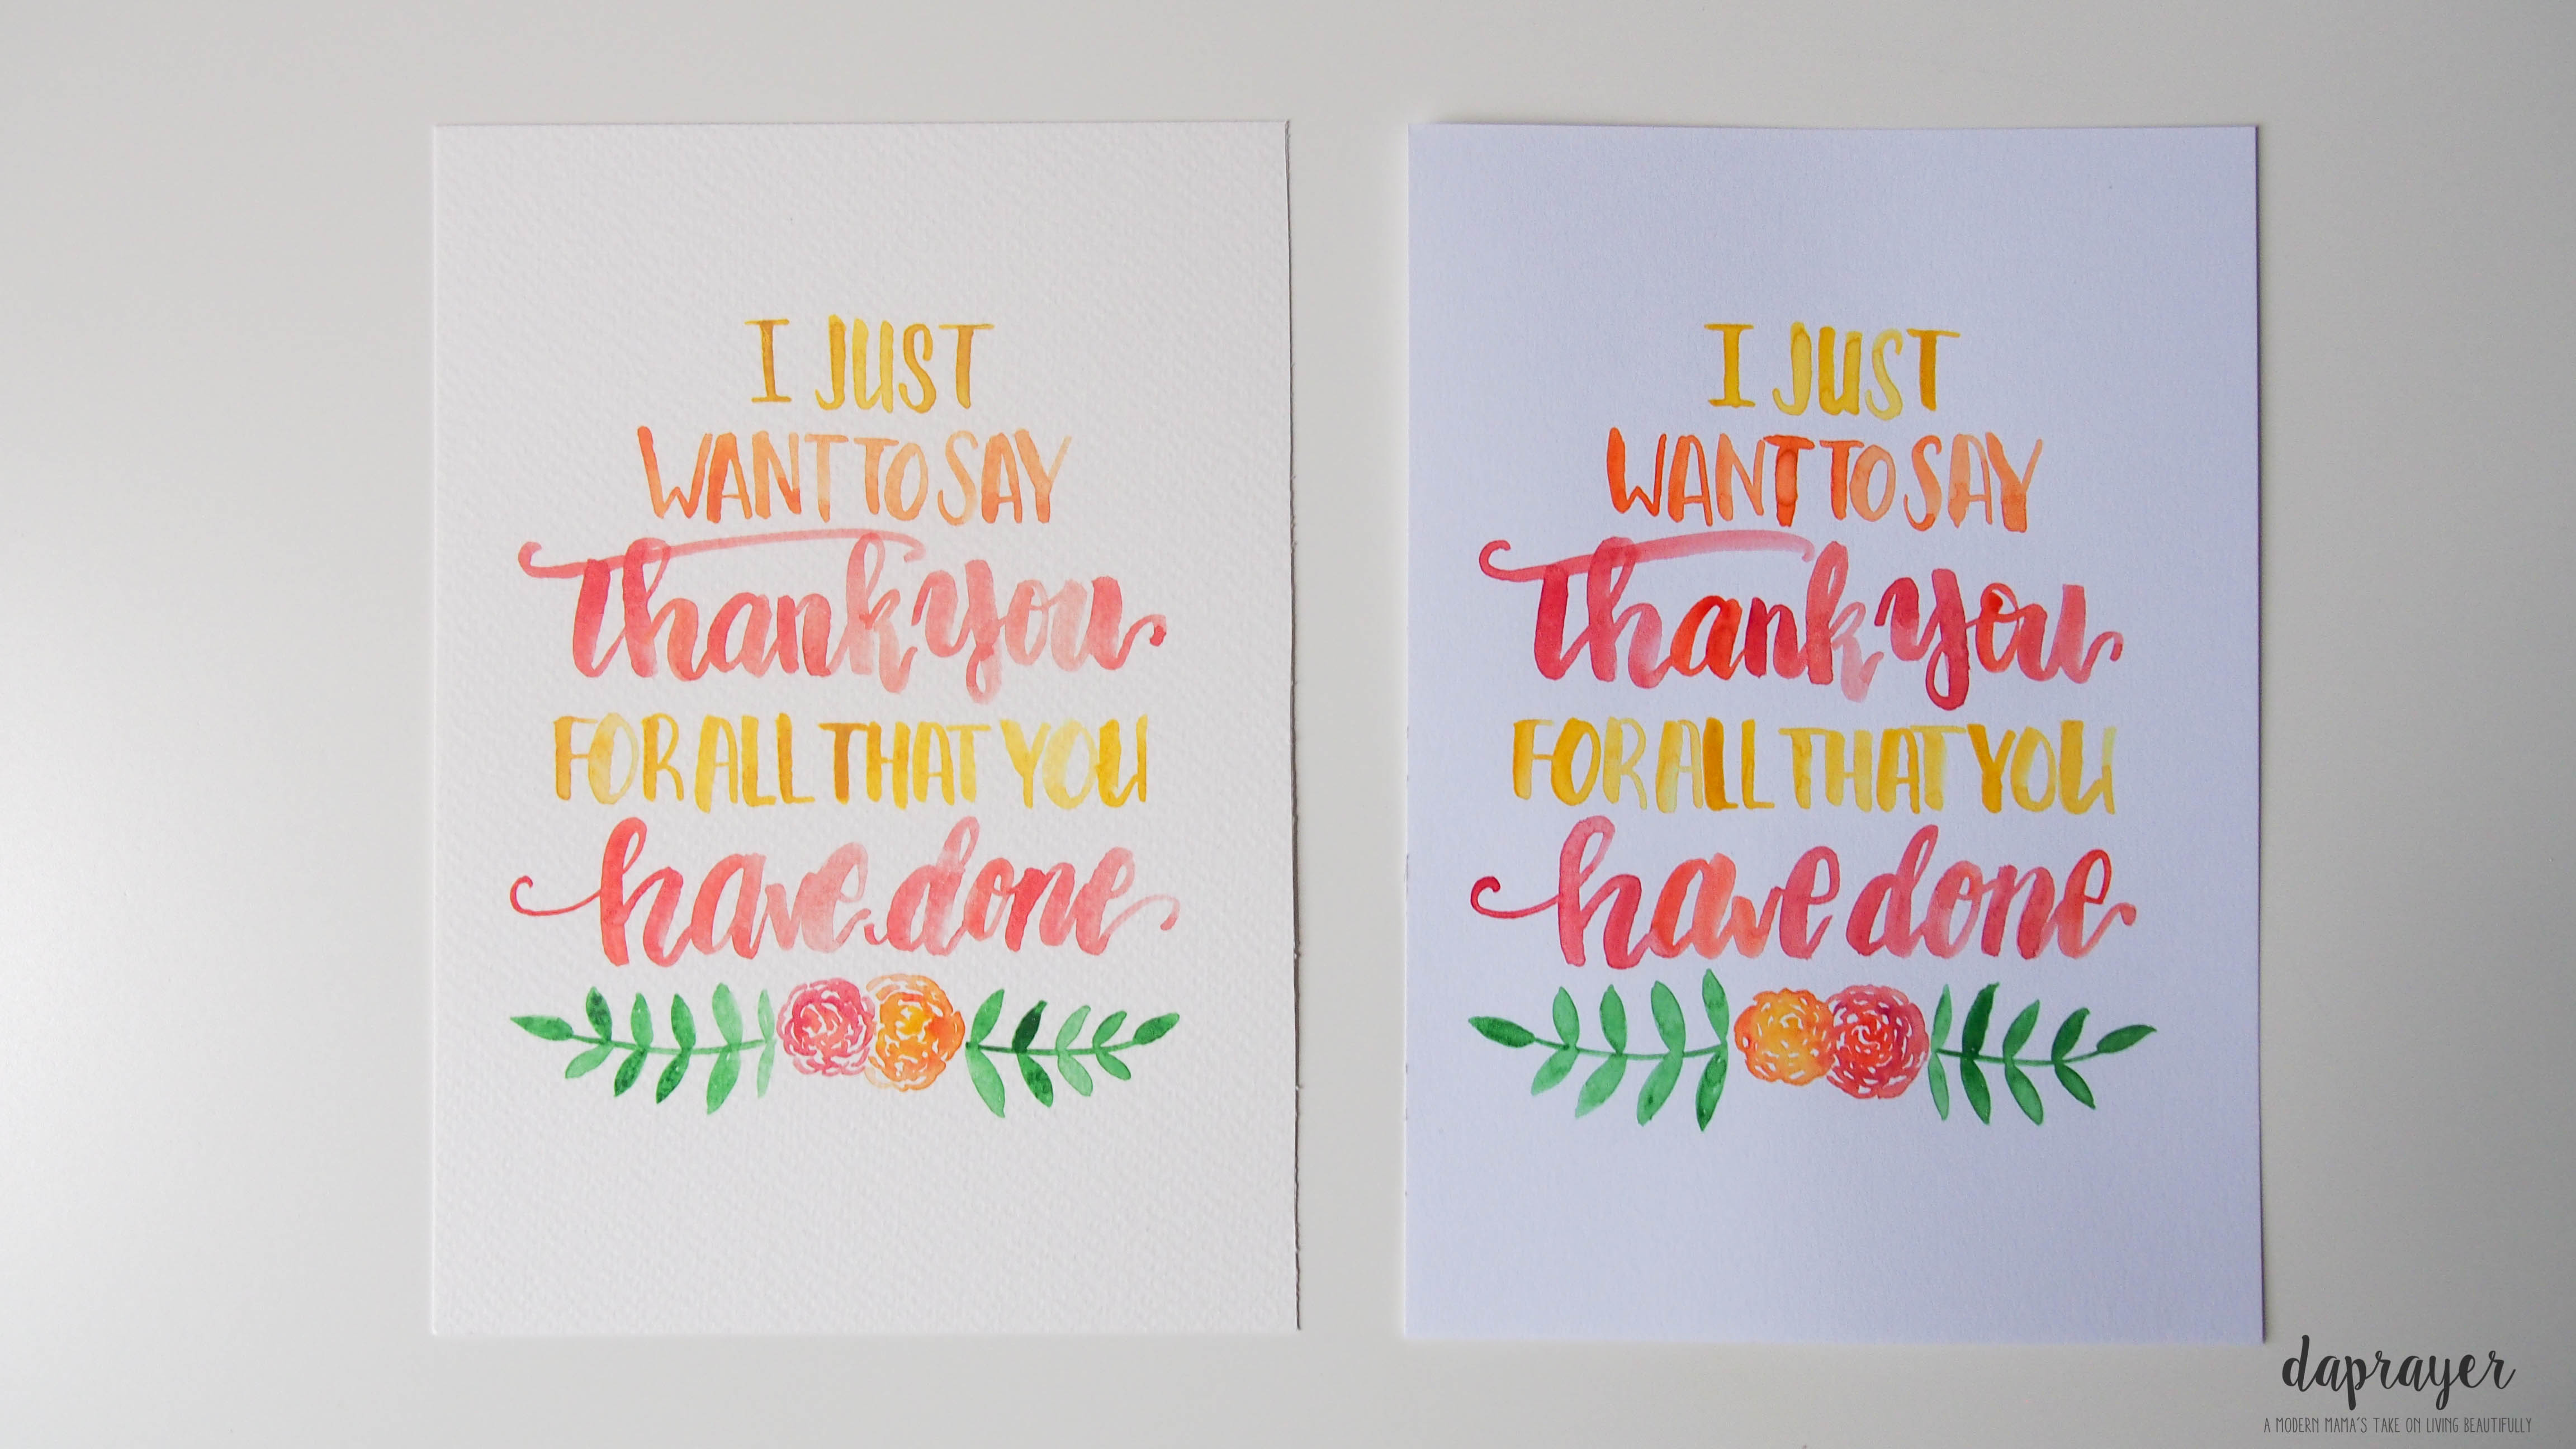 I JUST
WANT TO SAY
thank you
FOR ALL THAT YOU
have done
I JUST
WANT TO SAY
thank you
FOR ALL THAT YOU
have done
daprayer
A MODERN MAMA'S TAKE ON LIVING BEAUTIFULLY